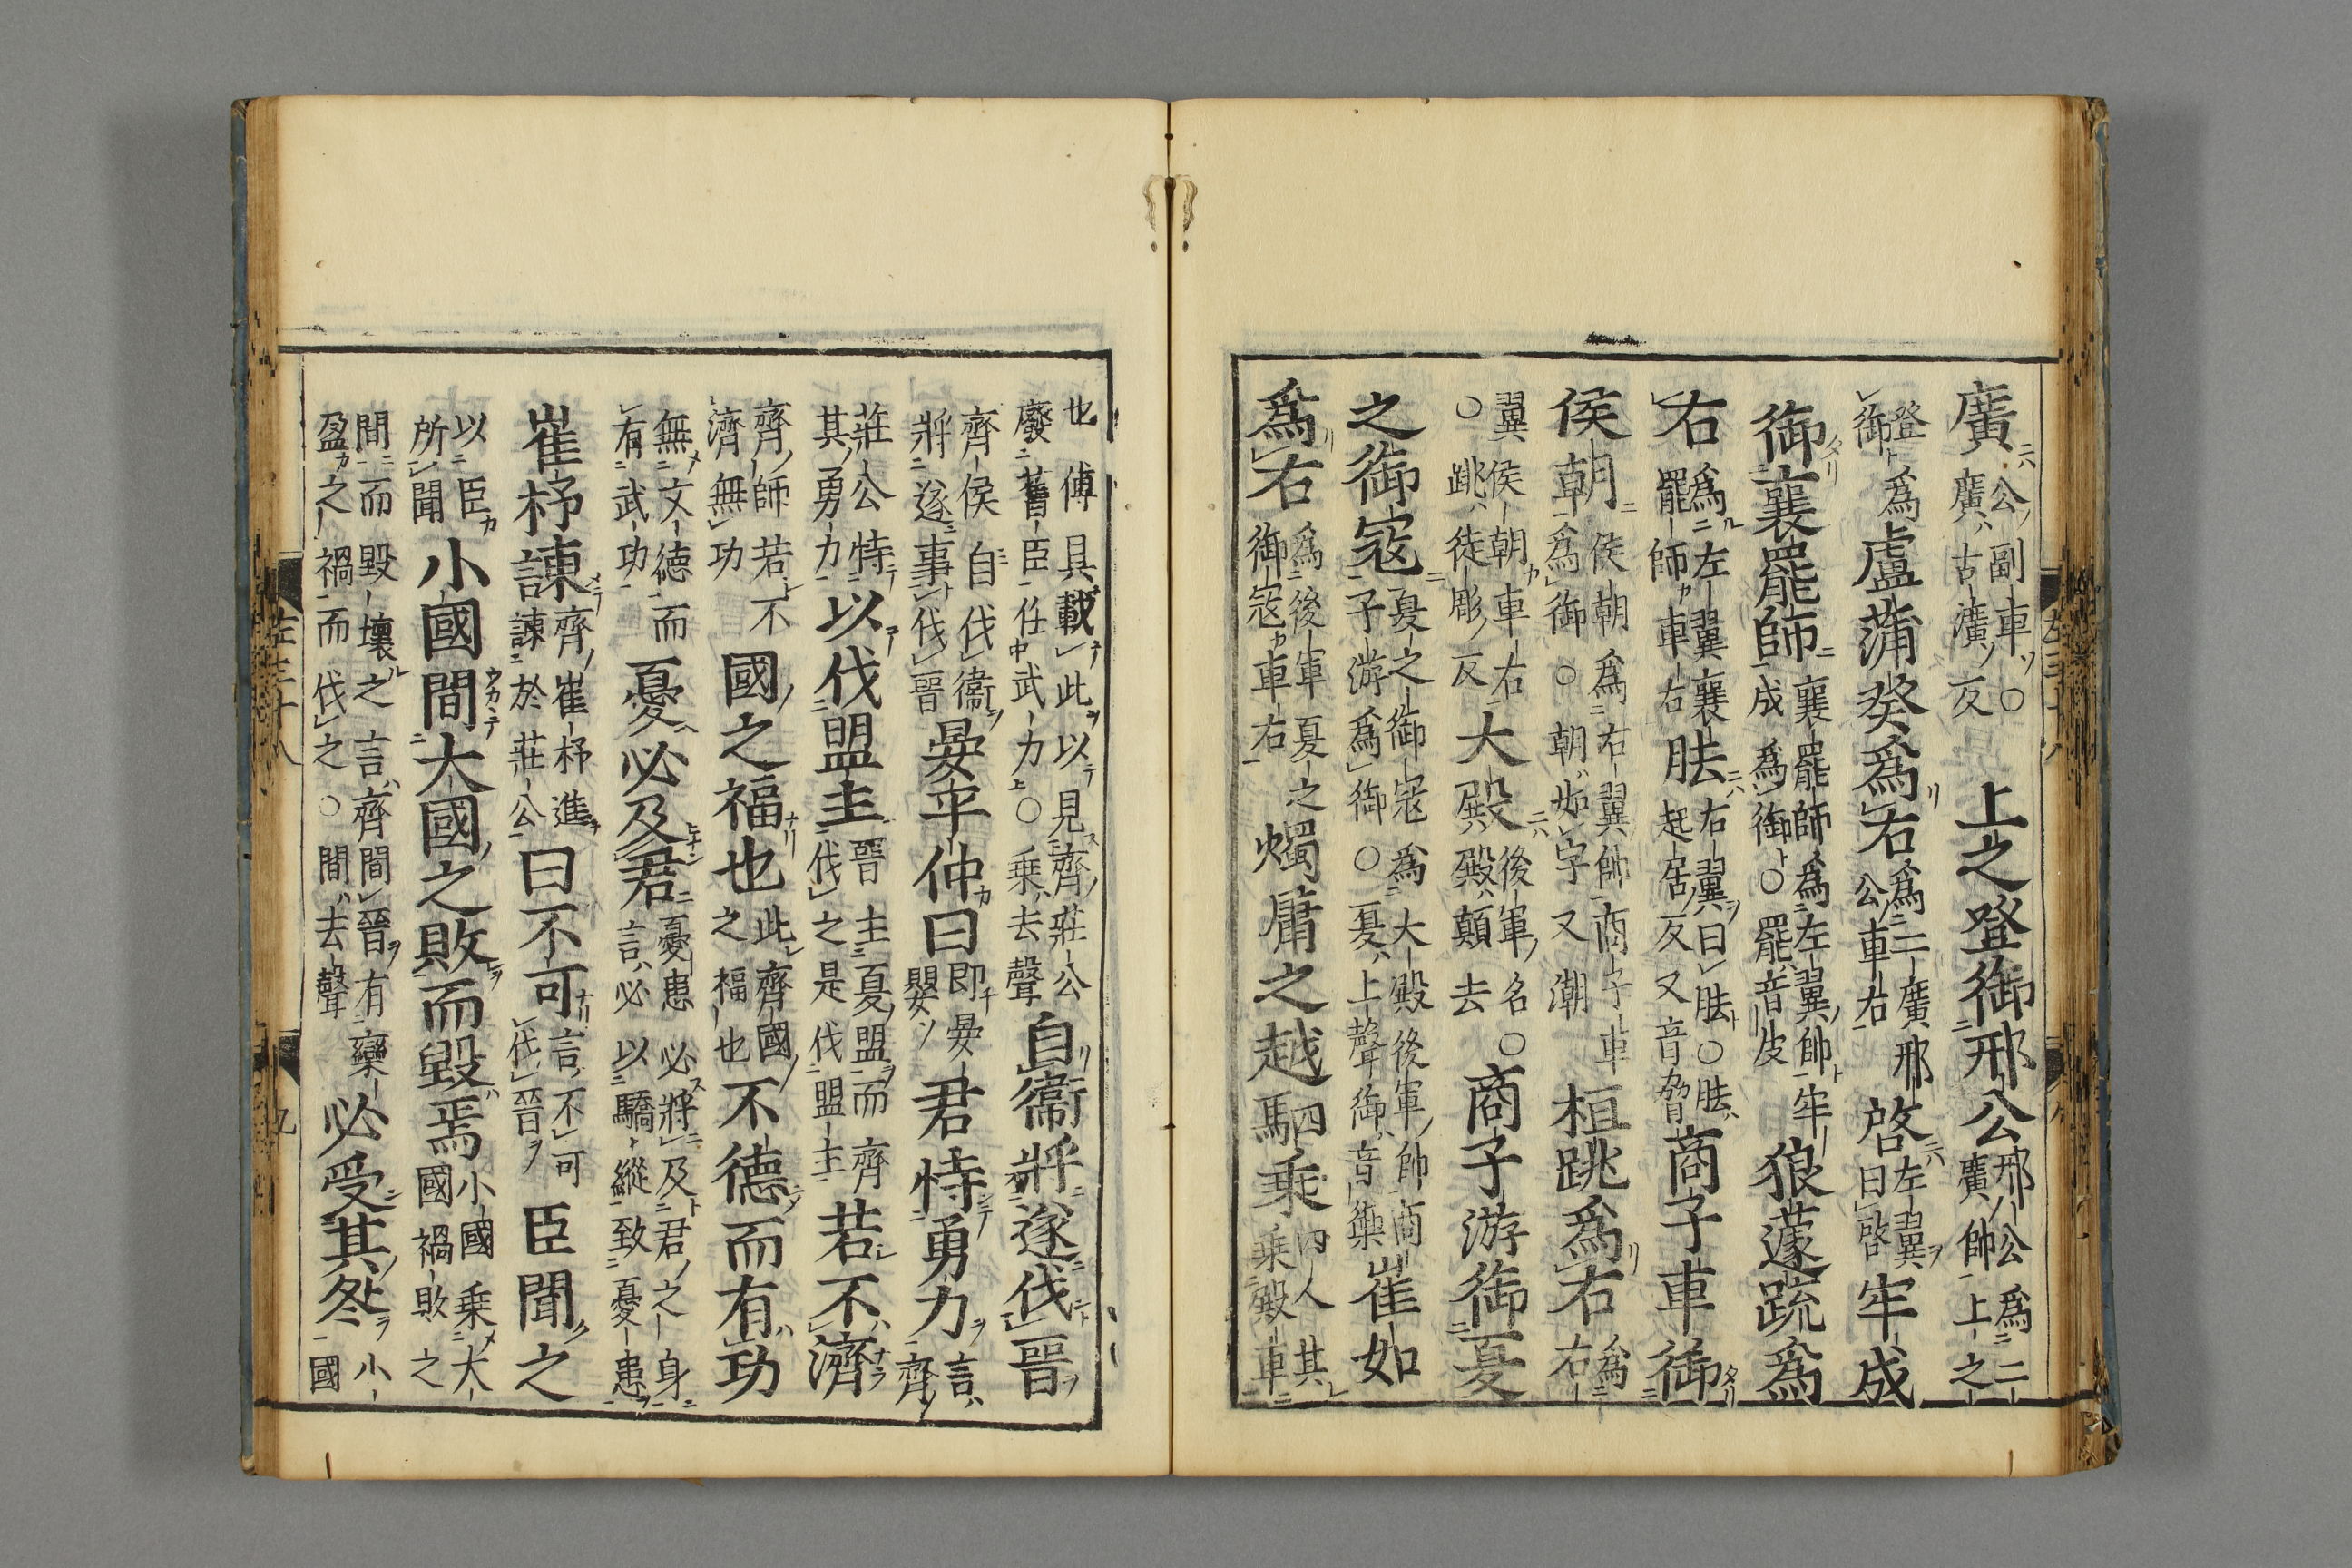 廣公副車○廣古廣反上之登御邢公邢公爲二廣帥上之
登御爲盧蒲癸爲右爲二廣邢公車右啓左翼曰啓牢成
御襄罷師襄罷師爲左翼帥牢成爲御○罷音皮狼蘧疏爲
右爲左翼襄罷師車右胠右翼曰胠○胠起居反又音脅商子車御
侯朝侯朝爲右翼帥商子車爲御○朝如字又潮桓跳爲右爲右
翼侯朝車右○跳徒彫反大殿後軍名○殿顛去商子游御夏
之御寇夏之御寇爲大殿後軍帥商子游爲御○夏上聲御音禦崔如
爲右爲後軍夏之御寇車右燭庸之越駟乘四人其乘殿車
左三十八
也傳具載此以見齊莊公廢舊臣任武力○乘去聲自衞將遂伐晉
齊侯自伐衞將遂事伐晉晏平仲曰即晏嬰君恃勇力言齊
莊公恃其勇力以伐盟主晉主夏盟而齊伐之是伐盟主若不濟
齊師若不濟無功國之福也此齊國之福也不德而有功
無文德而有武功憂必及君憂患必將及君之身言必以驕縱致憂患
崔杼諫齊崔杼進諫於莊公曰不可言不可伐晉臣聞之
以臣所聞小國間大國之敗而毀焉小國乘大國禍敗之
間而毀壞之言齊間晉有欒盈之禍而伐之○間去聲必受其咎小國
左三十八
九